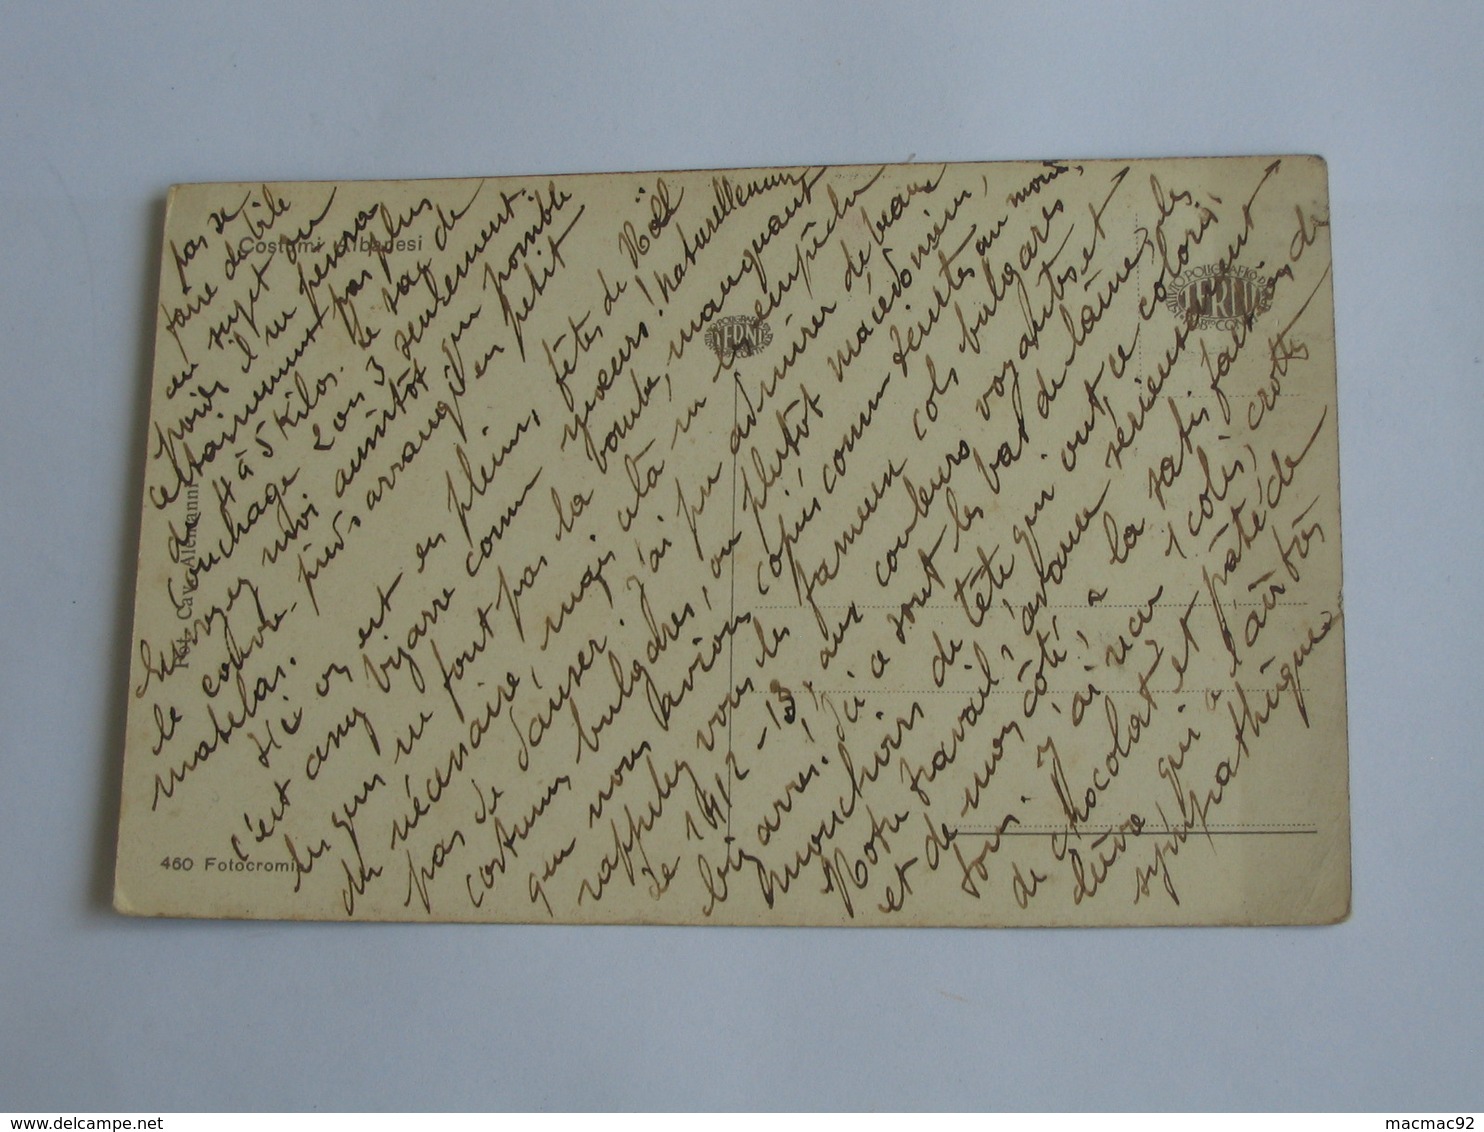 pas se
faire de bile
au sujet du
poids il ne pesera
certainement pas plus
de 4 à 5 kilos. le sac de
couchage 2 ou 3 seulement.
moi aussitôt que possible
le couvre-pieds arrangé en petit
matelas.
Ici on est en pleines fêtes de Noël
c'est assez bizarre comme mœurs! naturellement
les gens ne font pas la bombe, manquant
du nécessaire, mais cela ne les empêche
pas de danser. j'ai pu admirer de beaux
costumes bulgares, ou plutôt macédonien,
que nous avions copiés comme teintes au moins,
rappelez vous les fameux cols bulgares
de 1912-13, aux couleurs voyantes et
bizarres. Ici ce sont les bas de laine, les
mouchoirs de tête qui ont ce coloris!
Notre travail avance sérieusement
et de mon côté, la satisfaction di
j'ai reçu 1 colis, crottes
de chocolat et pâté de
lièvre, qui a l'air très
sympathique
Costumi Albanesi
Fot. Cav. Alemanni
460 Fotocromia
TERNI
TERNI
macmac92